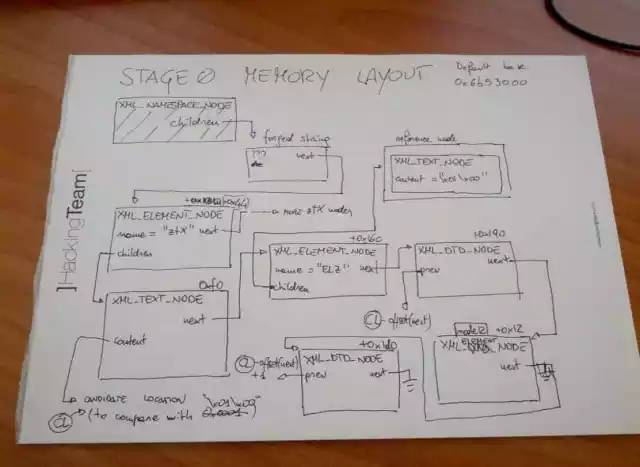 STAGE 0 MEMORY LAYOUT
Default base
0x6b53000
XML_NAMESPACE_NODE
children
forged string
???
next
reference node
XML_TEXT_NODE
content = "\x01\x00"
]HackingTeam[
XML_ELEMENT_NODE
name = "ztX" next
children
more ztX nodes
+0x160
XML_ELEMENT_NODE
name = "ELZ" next
children
+0x190
XML_DTD_NODE
next
prev
a - offset(next)
0xf0
XML_TEXT_NODE
next
content
a - offset(next)
+1
XML_DTD_NODE
prev next
node2 +0x12
ELEMENT
next
CANDIDATE LOCATION "\x01\x00"
a (to compare with